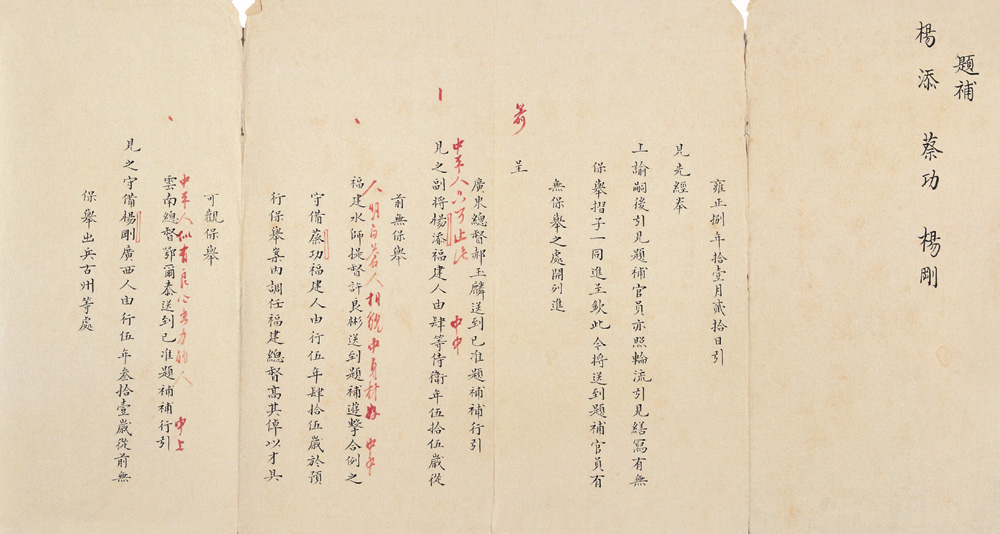 題補
楊添　蔡功　楊剛
雍正捌年拾壹月貳拾日引
見先經奉
上諭嗣後引見題補官員亦照輪流引見繕寫有無
保舉摺子一同進呈欽此今將送到題補官員有
無保舉之處開列進
呈
廣東總督郝玉麟送到已准題補補行引
中平人只可止此　中中
見之副將楊添福建人由肆等侍衛年伍拾伍歲從
前無保舉
人明白蒼人相貌中身材好　中中
福建水師提督許良彬送到題補遊擊合例之
守備蔡功福建人由行伍年肆拾伍歲於預
行保舉案內調任福建總督高其倬以才具
可觀保舉
中平人似有良心去力的人　中上
雲南總督鄂爾泰送到已准題補補行引
見之守備楊剛廣西人由行伍年叁拾壹歲從前無
保舉出兵古州等處